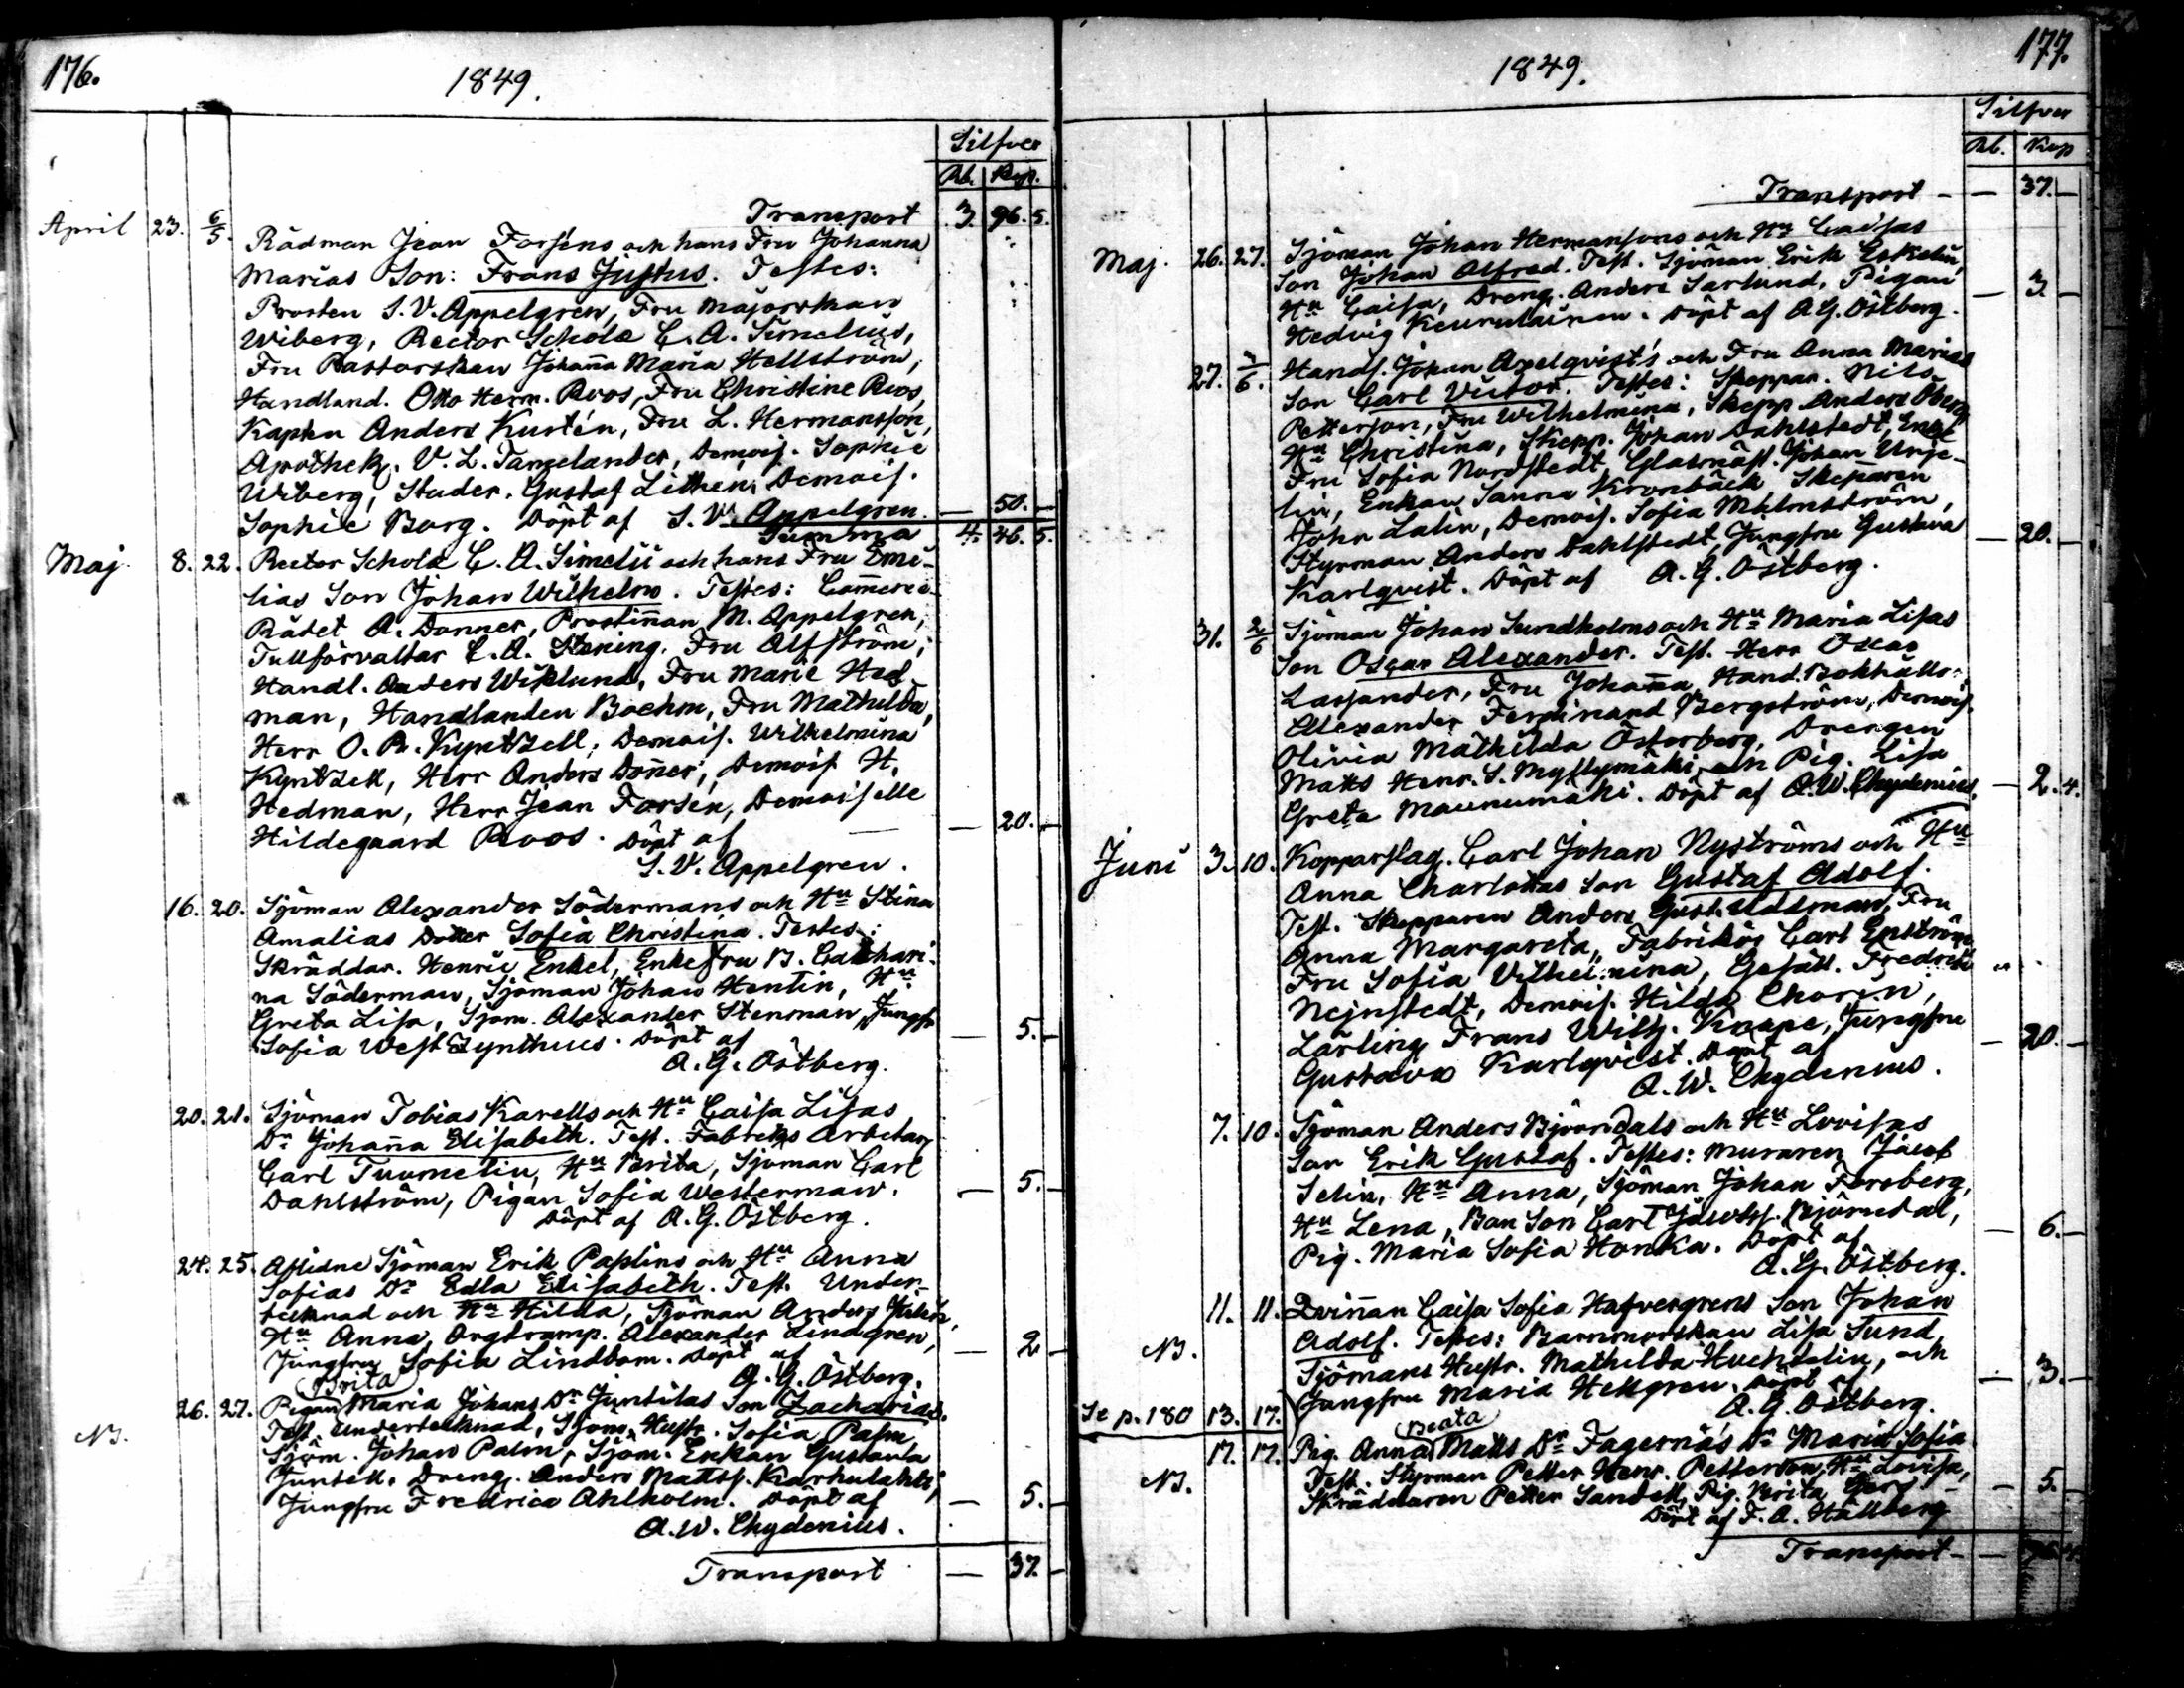 176.
1849.
Silfver
Rb. Kop.
Transport 3. 96. 5.
April 23. 6/5. Rådman Jean Forséns och hans Fru Johanna
Marias Son: Frans Justus. Testes:
Prosten S. V. Appelgren, Fru Majorskan
Wiberg, Rector Schola C. A. Simelius,
Fru Pastorskan Johana Maria Hellström,
Handland. Otto Herm. Roos, Fru Christine Roos,
Kapten Anders Kurtén, Fru L. Hermansson,
Apothek. V. L. Tangelander, Demois. Sophie
Wiberg, Studer. Gustaf Lithén, Demois.
Sophie Borg. Döpt af S. V. Appelgren. — 50. —
Summa 4. 46. 5.
Maj 8. 22. Rector Schola C. A. Simelii och hans Fru Emi-
lias Son Johan Wilhelm. Testes: Comerce-
Rådet A. Donner, Prostinnan M. Appelgren,
Tullförvaltar C. A. Stening, Fru Alfström,
Handl. Anders Wiklund, Fru Marie Hed-
man, Handlanden Boehm, Fru Mathilda,
Herr O. R. Kyntzell, Demois. Wilhelmina
Kyntzell, Herr Anders Doner, Demois. H.
Hedman, Herr Jean Forsén, Demoiselle
Hildegaard Roos. Döpt af — 20. —
S. V. Appelgren.
16. 20. Sjöman Alexander Södermans och Hu Stina
Amalias Dotter Sofia Christina. Testes:
Skräddar. Henric Enkel, Enkefru B. Cathari-
na Söderman, Sjöman Johan Hentin, Hu
Greta Lisa, Sjöm. Alexander Stenman, Jungfr
Sofia West Zynthius. Döpt af — 5. —
A. G. Östberg.
20. 21. Sjöman Tobias Karells och Hu Caisa Lisas
Dr Johana Elisabeth. Test. Fabriks Arbetar
Carl Tuomelin, Hu Brita, Sjöman Carl
Dahlström, Pigan Sofia Westerman. — 5. —
Döpt af A. G. Östberg.
24. 25. Aflidne Sjöman Erik Paplins och Hu Anna
Sofias Dr Edla Elisabeth. Test. Under-
tecknad och Hu Hilda, Sjöman Anders
Hu Anna, Orgtramp. Alexander Lindgren, — 2 —
Jungfru Sofia Lindbom. Döpt af
A. G. Östberg.
Brita
26. 27. Pigan Maria Johans Dr Juntilas Son Zacharias.
NB. Test. Undertecknad, Sjöm. Hustr. Sofia Palm
Sjöm. Johan Palm, Sjöm. Enkan Gustava
Juntell, Dreng. Anders Mattss. Karhulahti,
Jungfru Fredrica Ahlholm. Döpt af — 5. —
A. W. Chydenius.
Transport — 37. —
177.
1849.
Silfver
Rb. Kop
Transport — — 37. —
Maj. 26. 27. Sjöman Johan Hermansons och Hu Caisas
Son Johan Alfred. Test. Sjöman Erik Eskelin,
Hu Caisa, Dreng. Anders Sarlund, Pigan — 3 —
Hedvig Keurulainen. Döpt af A. G. Östberg.
27. 3/6. Handl. Johan Axelqvist's och Fru Anna Marias
Son Carl Victor. Testes: Skeppar. Nils
Petterson, Fru Wilhelmina, Skepp Anders Öberg
Hu Christina, Skepp. Johan Dahlstedt, Enkl
Fru Sofia Nordstedt, Glasmäst. Johan Unge-
lin, Enkan Sanna Kronbäck Skepparen
John Lalin, Demois. Sofia Malmström,
Styrman Anders Dahlstedt, Jungfru Gustava — 20. —
Karlqvist. Döpt af A. G. Östberg.
31. 2/6 Sjöman Johan Sundholms och Hu Maria Lisas
Son Oscar Alexander. Test. Herr Oscar
Lassander, Fru Johana, Hand. Bokhållr.
Alexander Ferdinand Bergström, Demois.
Olivia Mathilda Österberg, Drengen
Matts Henr. S. Myllymäki, och Pig. Lisa
Greta Maunumäki. Döpt af A. W. Chydenius. — 2. 4.
Juni 3. 10. Kopparslag. Carl Johan Nyströms och Hu
Anna Charlottas Son Gustaf Adolf.
Test. Skepparen Anders Gust. Uddman, Fru
Anna Margareta, Fabrikör Carl Enström,
Fru Sofia Vilhelmina, Gesäll. Fredrik
Nejnstedt, Demois. Hilda Chorin,
Lärling Frans Wilh. Knape, Jungfru
Gustava Karlqvist. Döpt af — 20. —
A. W. Chydenius.
7. 10. Sjöman Anders Björndals och Hu Lovisas
Son Erik Gustaf. Testes: Muraren Jacob
Selin, Hu Anna, Sjöman Johan Forsberg,
Hu Lena, Bon Son Carl Jacobss. Björndal,
Pig. Maria Sofia Honka. Döpt af — 6. —
A. G. Östberg.
11. 11. Qvinnan Caisa Sofia Hafvergrens Son Johan
NB. Adolf. Testes: Barnmorskan Lisa Sund,
Sjömans Hustr. Mathilda Huchtelin, och
Jungfru Maria Hellgren. Döpt af — 3. —
A. G. Östberg.
Se p. 180 13. 17.
Beata
17. 17. Pig. Anna Matts Dr Fagernäs Dr Maria Sofia
NB. Test. Styrman Petter Henr. Petterson, Hu Lovisa,
Skräddaren Petter Sandell, Pig. Brita — 5. —
Döpt af F. A. Hällberg
Transport —